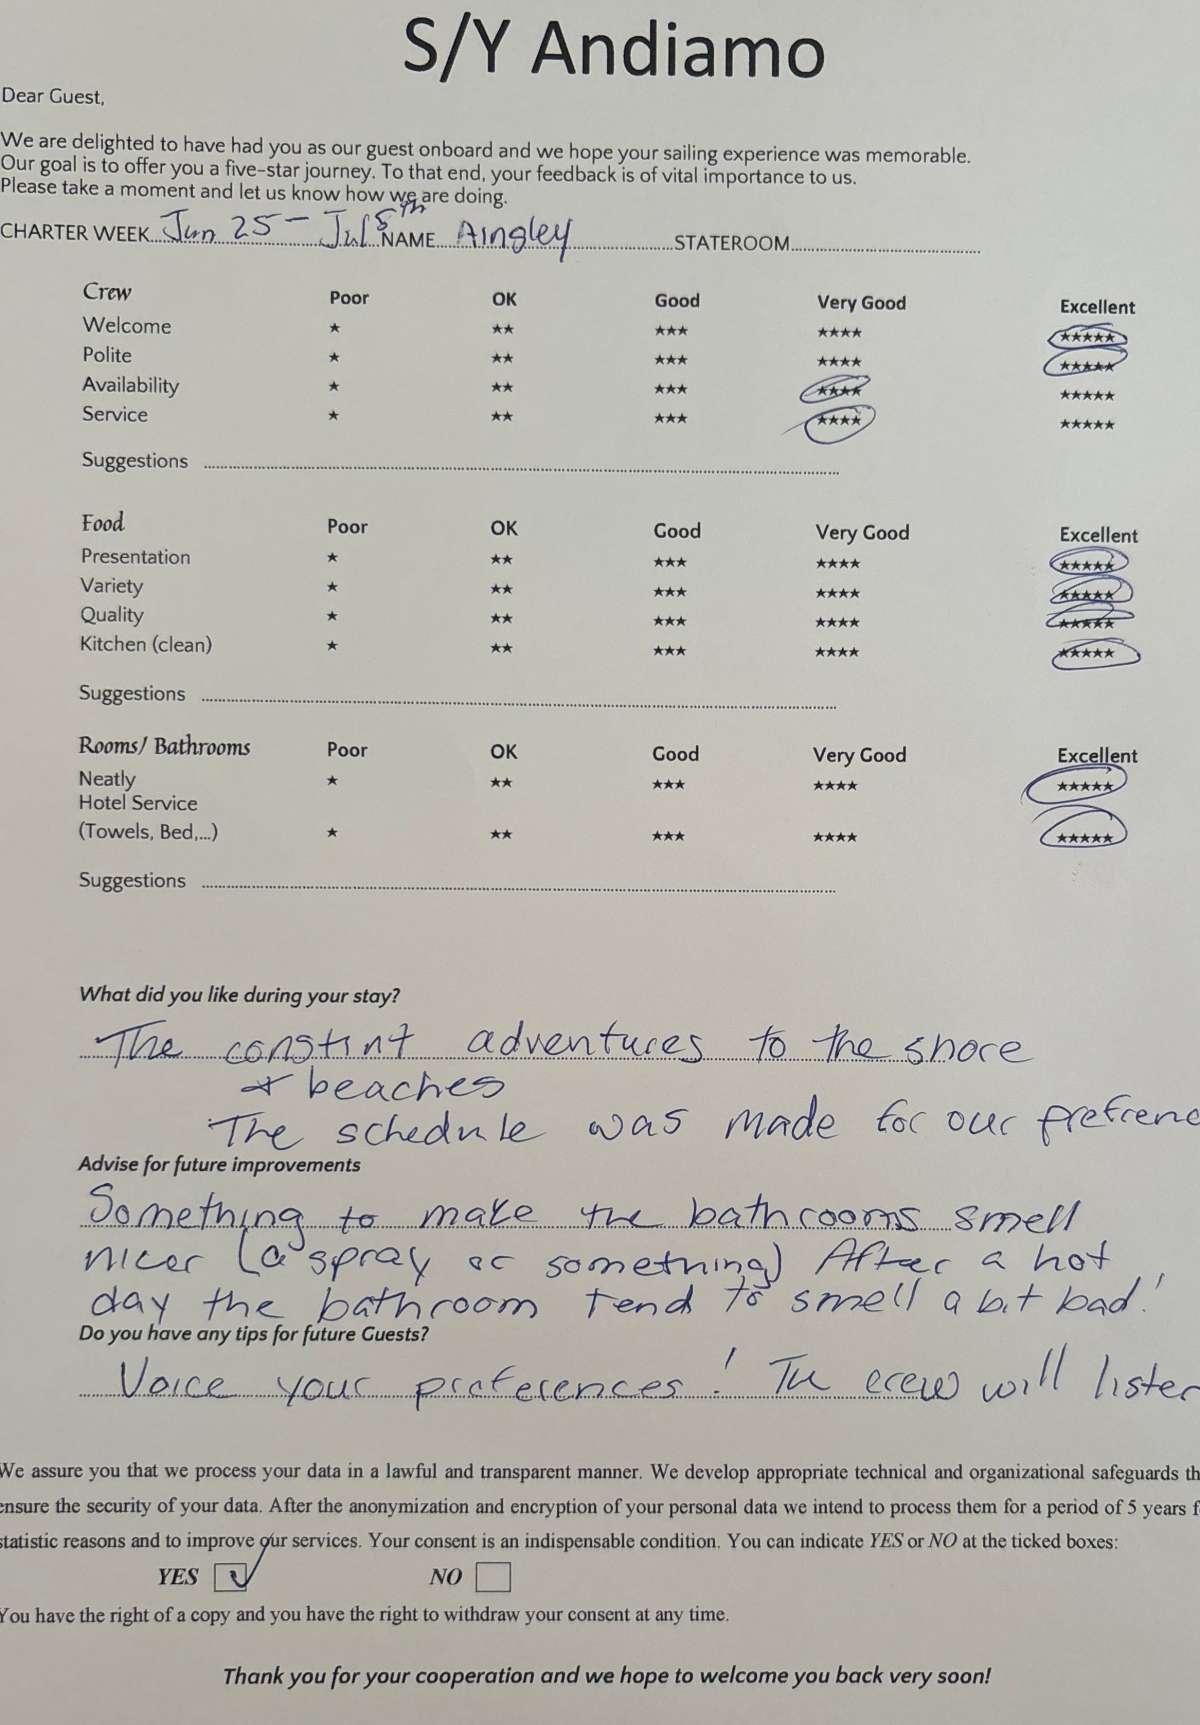 S/Y Andiamo
Dear Guest,
We are delighted to have had you as our guest onboard and we hope your sailing experience was memorable.
Our goal is to offer you a five-star journey. To that end, your feedback is of vital importance to us.
Please take a moment and let us know how we are doing.
CHARTER WEEK Jun 25 - Jul 5th NAME Aingley STATEROOM
Crew Poor OK Good Very Good Excellent
Welcome ★ ★★ ★★★ ★★★★ ★★★★★
Polite ★ ★★ ★★★ ★★★★ ★★★★★
Availability ★ ★★ ★★★ ★★★★ ★★★★★
Service ★ ★★ ★★★ ★★★★ ★★★★★
Suggestions
Food Poor OK Good Very Good Excellent
Presentation ★ ★★ ★★★ ★★★★ ★★★★★
Variety ★ ★★ ★★★ ★★★★ ★★★★★
Quality ★ ★★ ★★★ ★★★★ ★★★★★
Kitchen (clean) ★ ★★ ★★★ ★★★★ ★★★★★
Suggestions
Rooms/ Bathrooms Poor OK Good Very Good Excellent
Neatly ★ ★★ ★★★ ★★★★ ★★★★★
Hotel Service
(Towels, Bed,...) ★ ★★ ★★★ ★★★★ ★★★★★
Suggestions
What did you like during your stay?
The constint adventures to the shore
& beaches
The schedule was made for our prefrenc
Advise for future improvements
Something to make the bathrooms smell
nicer (a spray or something) After a hot
day the bathroom tend to smell a bit bad!
Do you have any tips for future Guests?
Voice your preferences! The crew will listen
We assure you that we process your data in a lawful and transparent manner. We develop appropriate technical and organizational safeguards th
ensure the security of your data. After the anonymization and encryption of your personal data we intend to process them for a period of 5 years f
statistic reasons and to improve our services. Your consent is an indispensable condition. You can indicate YES or NO at the ticked boxes:
YES NO
You have the right of a copy and you have the right to withdraw your consent at any time.
Thank you for your cooperation and we hope to welcome you back very soon!